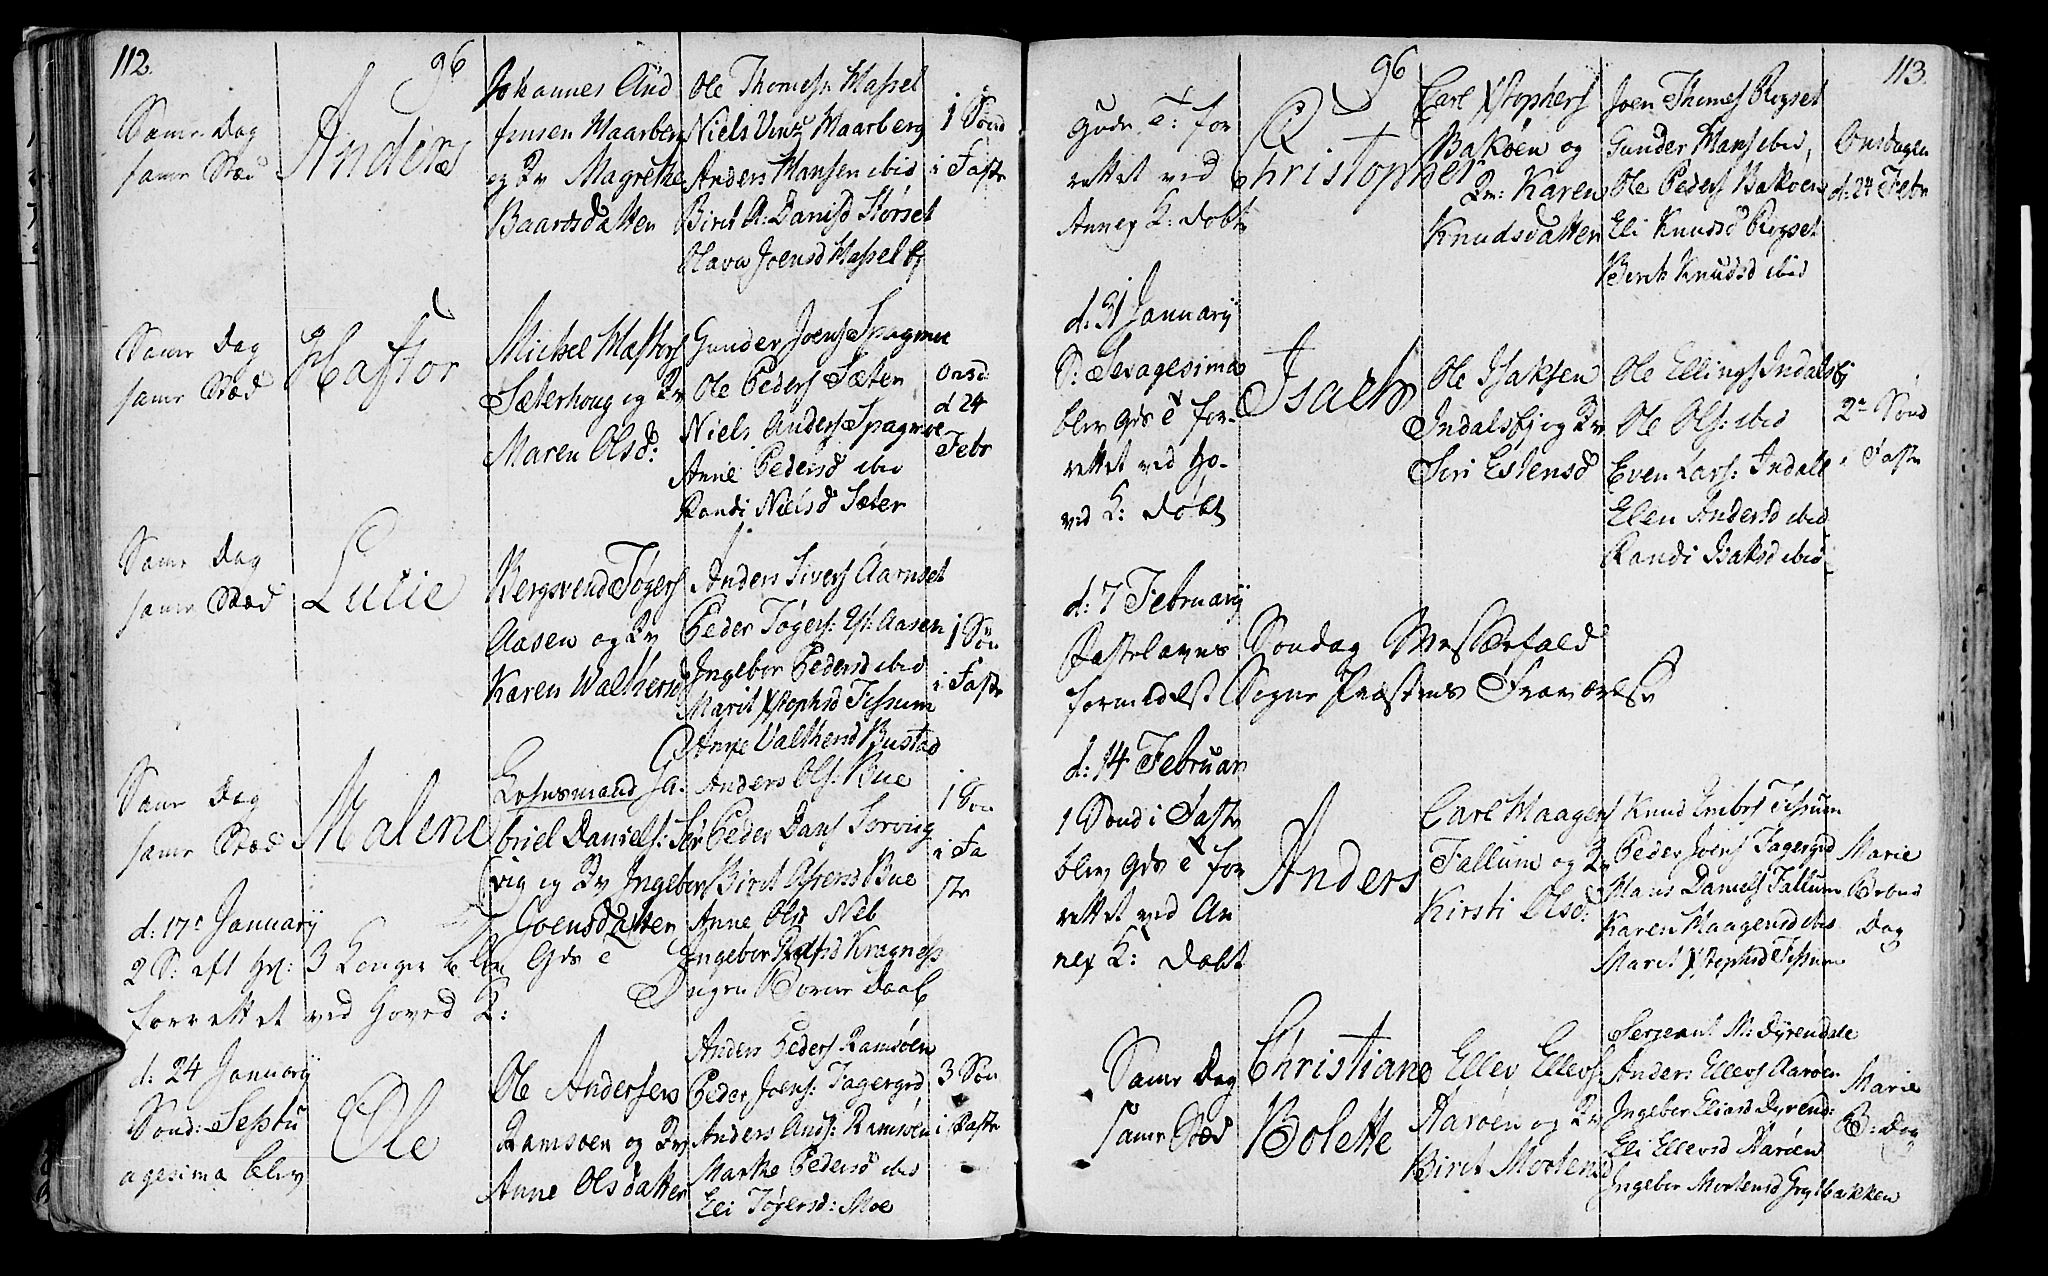 112.
96
Samme Dag
samme Stæd
Anders
Johannes And
fensen Maarberg
og Qv Magrethe
Baardsdatter
Ole Thomesn Hassel
Niels Vinz Maarberg
Anders Hansen ibid
Birit A: Danisd Størset
Olava Joensd Hassel bj
1 Sønd
i Faste
Samme Dag
samme Stæd
Haftor
Michel Hafters
Sæterhoug og Qv
Maren Olsd:
Gunder Joens Spagmoe
Ole Peders Sæter
Niels Anders Spagmoe
Anne Pedersd ibid
Randi Nielsd Sæter
Onsd
d 24
Febr
Samme Dag
samme Stæd
Lucie
Bergsvend Tøgers
Aasen og Qv
Karen Walthersd
Anders Sivers Aarnset
Peder Tøgers: Aasen
Ingebor Pedersd ibid
Marit Xstophsd Tessum
Anne Valthersd Bustad
1 Søn
i Faste
Samme Dag
samme Stæd
Malene
Ga-
briel Daniels: Sør
vig og Qv Ingebor
Joensdatter
Anders Ols: Bue
Peder Dans Sørvig
Birit Bue
Anne Olsd Neb
Ingebor Kragness
1 Søn
i Fa
ste
d: 17e January
2 S: eft H: 3 Konger blev Gds T
forrettet ved Hoved K:
Ingen Børne Daab
d: 24 January
Sønd: Septu
agesima blev
Ole
Ole Andersen
Ramsøen og Qv
Anne Olsdatter
Anders Peders Ramsøen
Peder Joens: Fagergrd
Anders Ands: Ramsøen
Marthe Pedersd ibid
Eli Tøgersd: Moe
3 Søn
i Faste
113.
96
Guds T: for
rettet ved
Annex K: døbt
Christopher
Carl Xstophers
Bakøen og
Qv: Karen
Knudsdatter
Joen Thomes Rogset
Gunder Hans ibid,
Ole Peders Bakøen
Eli Knudsd Rogset
Berit Knudsd ibid
Onsdagen
d: 24 Febr
d: 31 January
S: Sexagesima
blev Gds T for-
rettet ved Ho-
ved K: døbt
Isach
Ole Isaksen
Indalsbj og Qv
Siri Estensd
Ole Ellings Indalsbj
Ole Ols: ibid
Even Lars: Indale
Elen Andersd ibid
Randi Isaksd ibid
2n Sønd
i Faste
d: 7 February
Fastelavns Søndag Messefald
formedelst Sogne Præstens Fraværelse
d: 14 Februar
1 Sønd i Faste
blev Gds T for
rettet ved An
nex K: døbt
Anders
Carl Haagens
Fallum og Qv
Kirsti Olsd:
Knud Tessum
Peder Joens Fagergrd
Hans Daniels Fallum
Karen Haagensd ibid
Marit Xstophsd Tessum
Marie
Dag
Samme Dag
samme Stæd
Christiane
Bolette
Ellev Ellevs:
Aarøen og Qv
Birit Mortensd
Sergeant M: Dyrendale
Anders Ellevs Aarøen
Ingebor Dyrend:
Eli Ellevsd Aarøen
Ingebor Mortensd Grytbakken
Marie
B: Dag